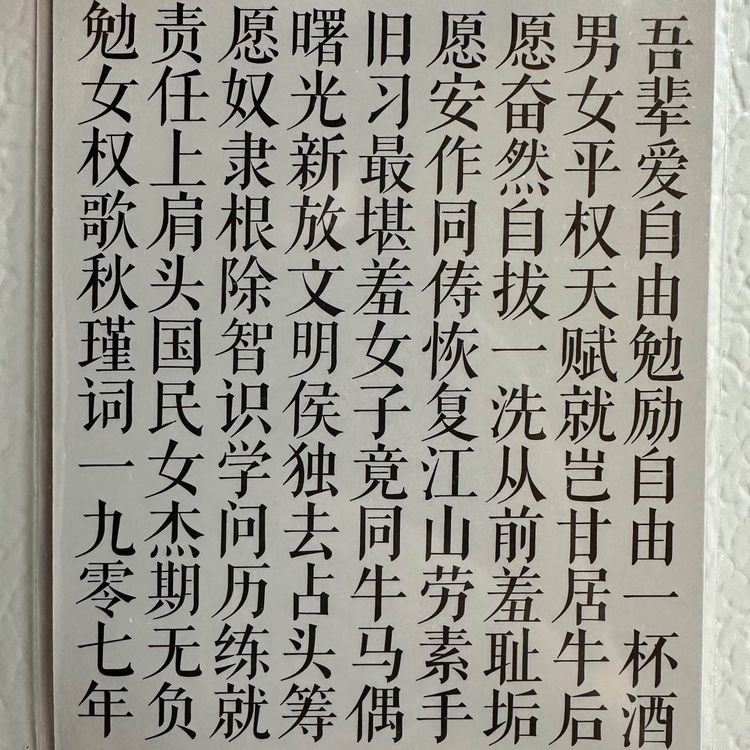 吾辈爱自由勉励自由一杯酒
男女平权天赋就岂甘居牛后
愿奋然自拔一洗从前羞耻垢
愿安作同侍恢复江山劳素手
旧习最堪羞女子竟同牛马偶
曙光新放文明侯独去占头筹
愿奴隶根除智识学问历练就
责任上肩头国民女杰期无负
勉女权歌秋瑾词一九零七年